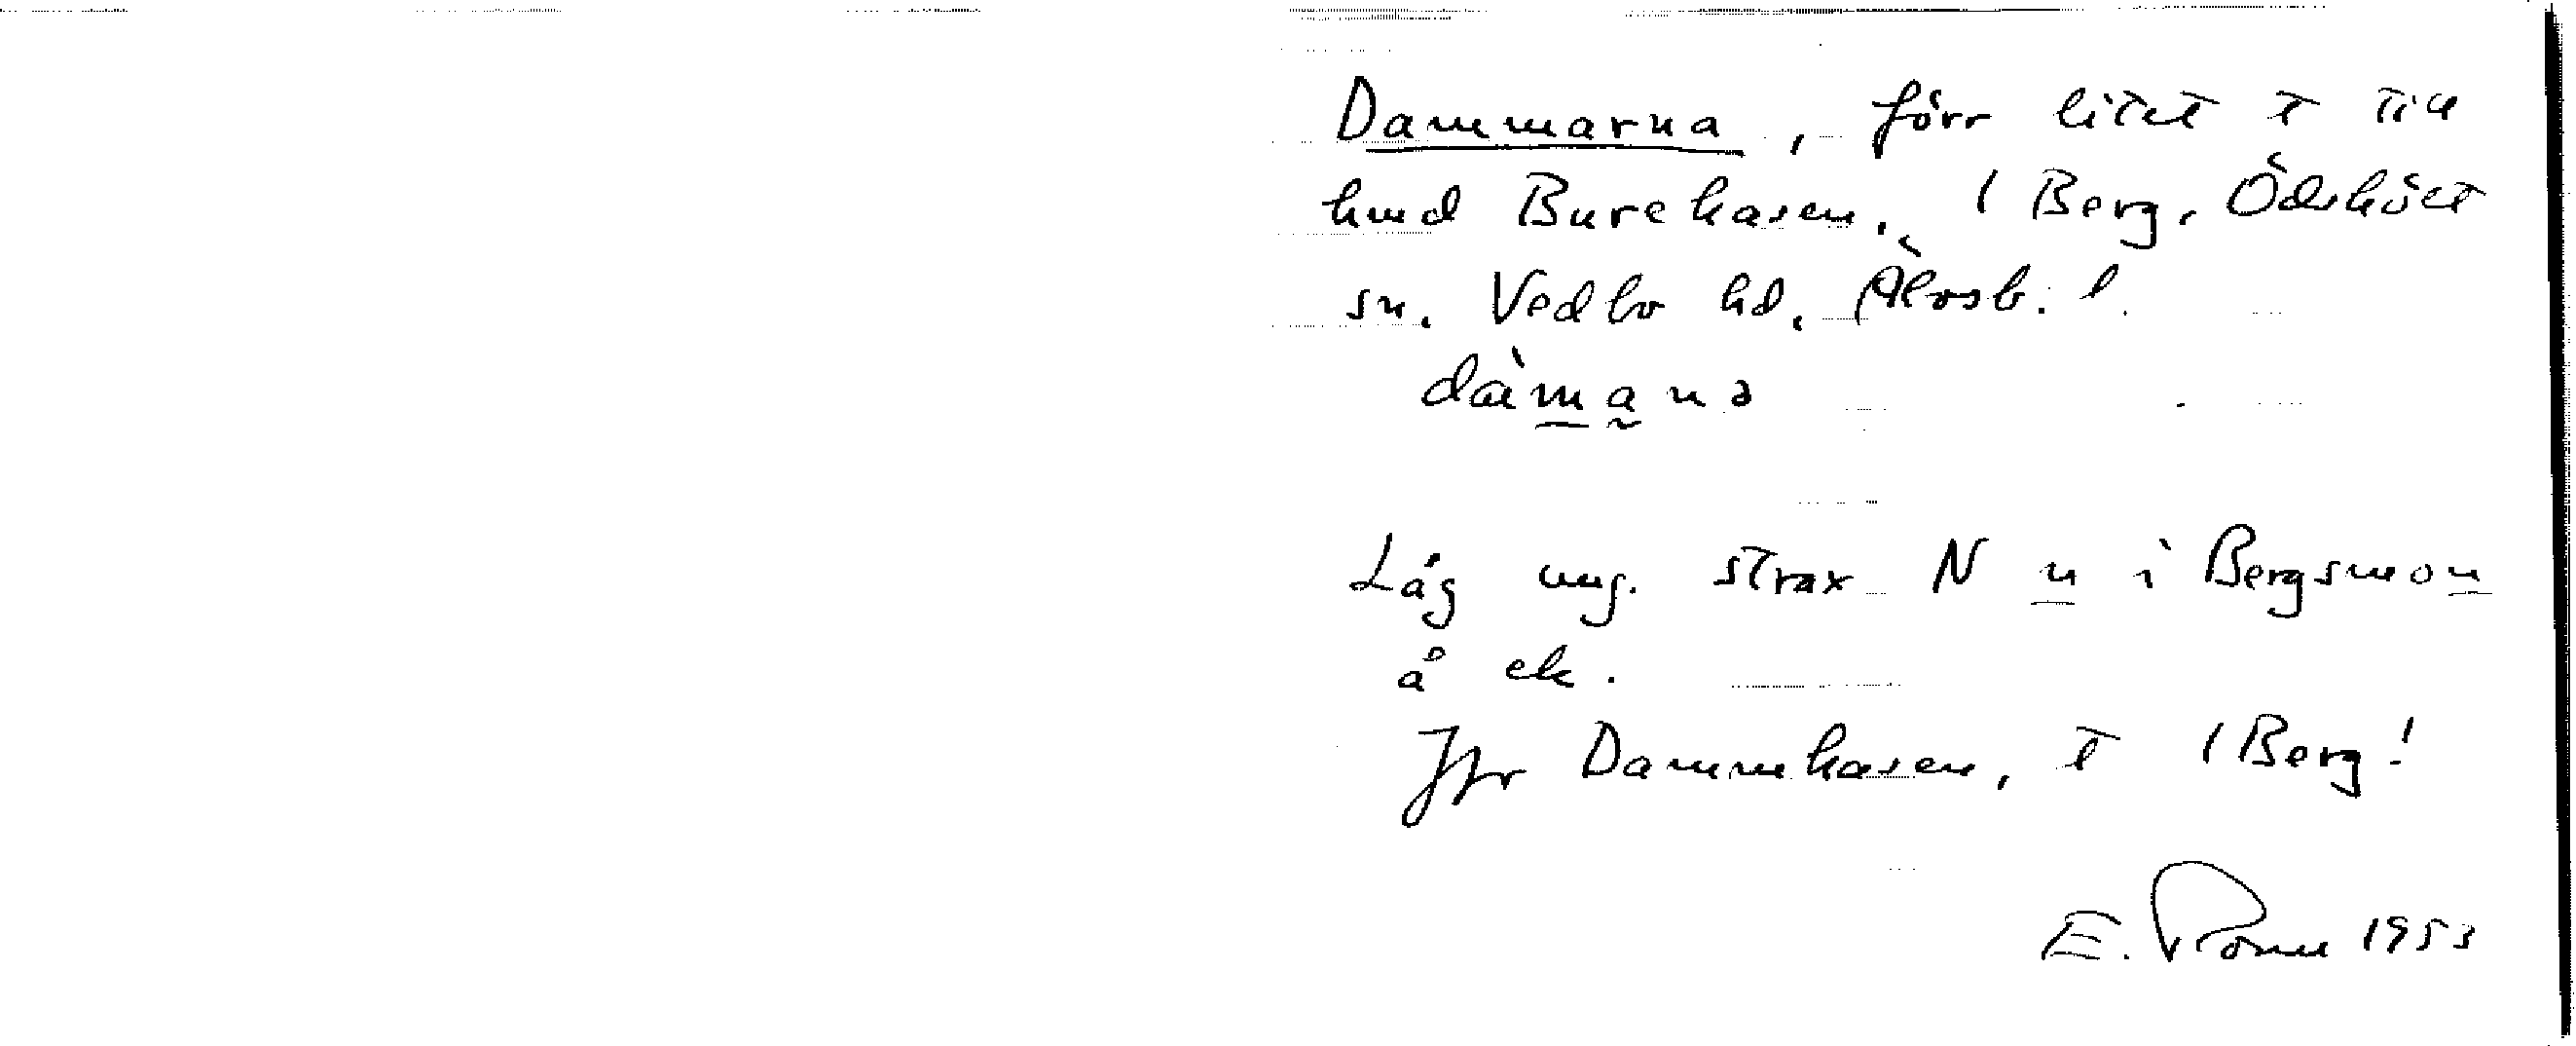 Dammarna, förr litet t till
hmd Burekasen. 1 Berg, Ödskölt
sn. Vedbo hd. Älvsb. l.
dàmana
Låg ung. strax N n i Bergsmon
å ek.
Jfr Dammkasen, t 1 Berg!
E. 1953